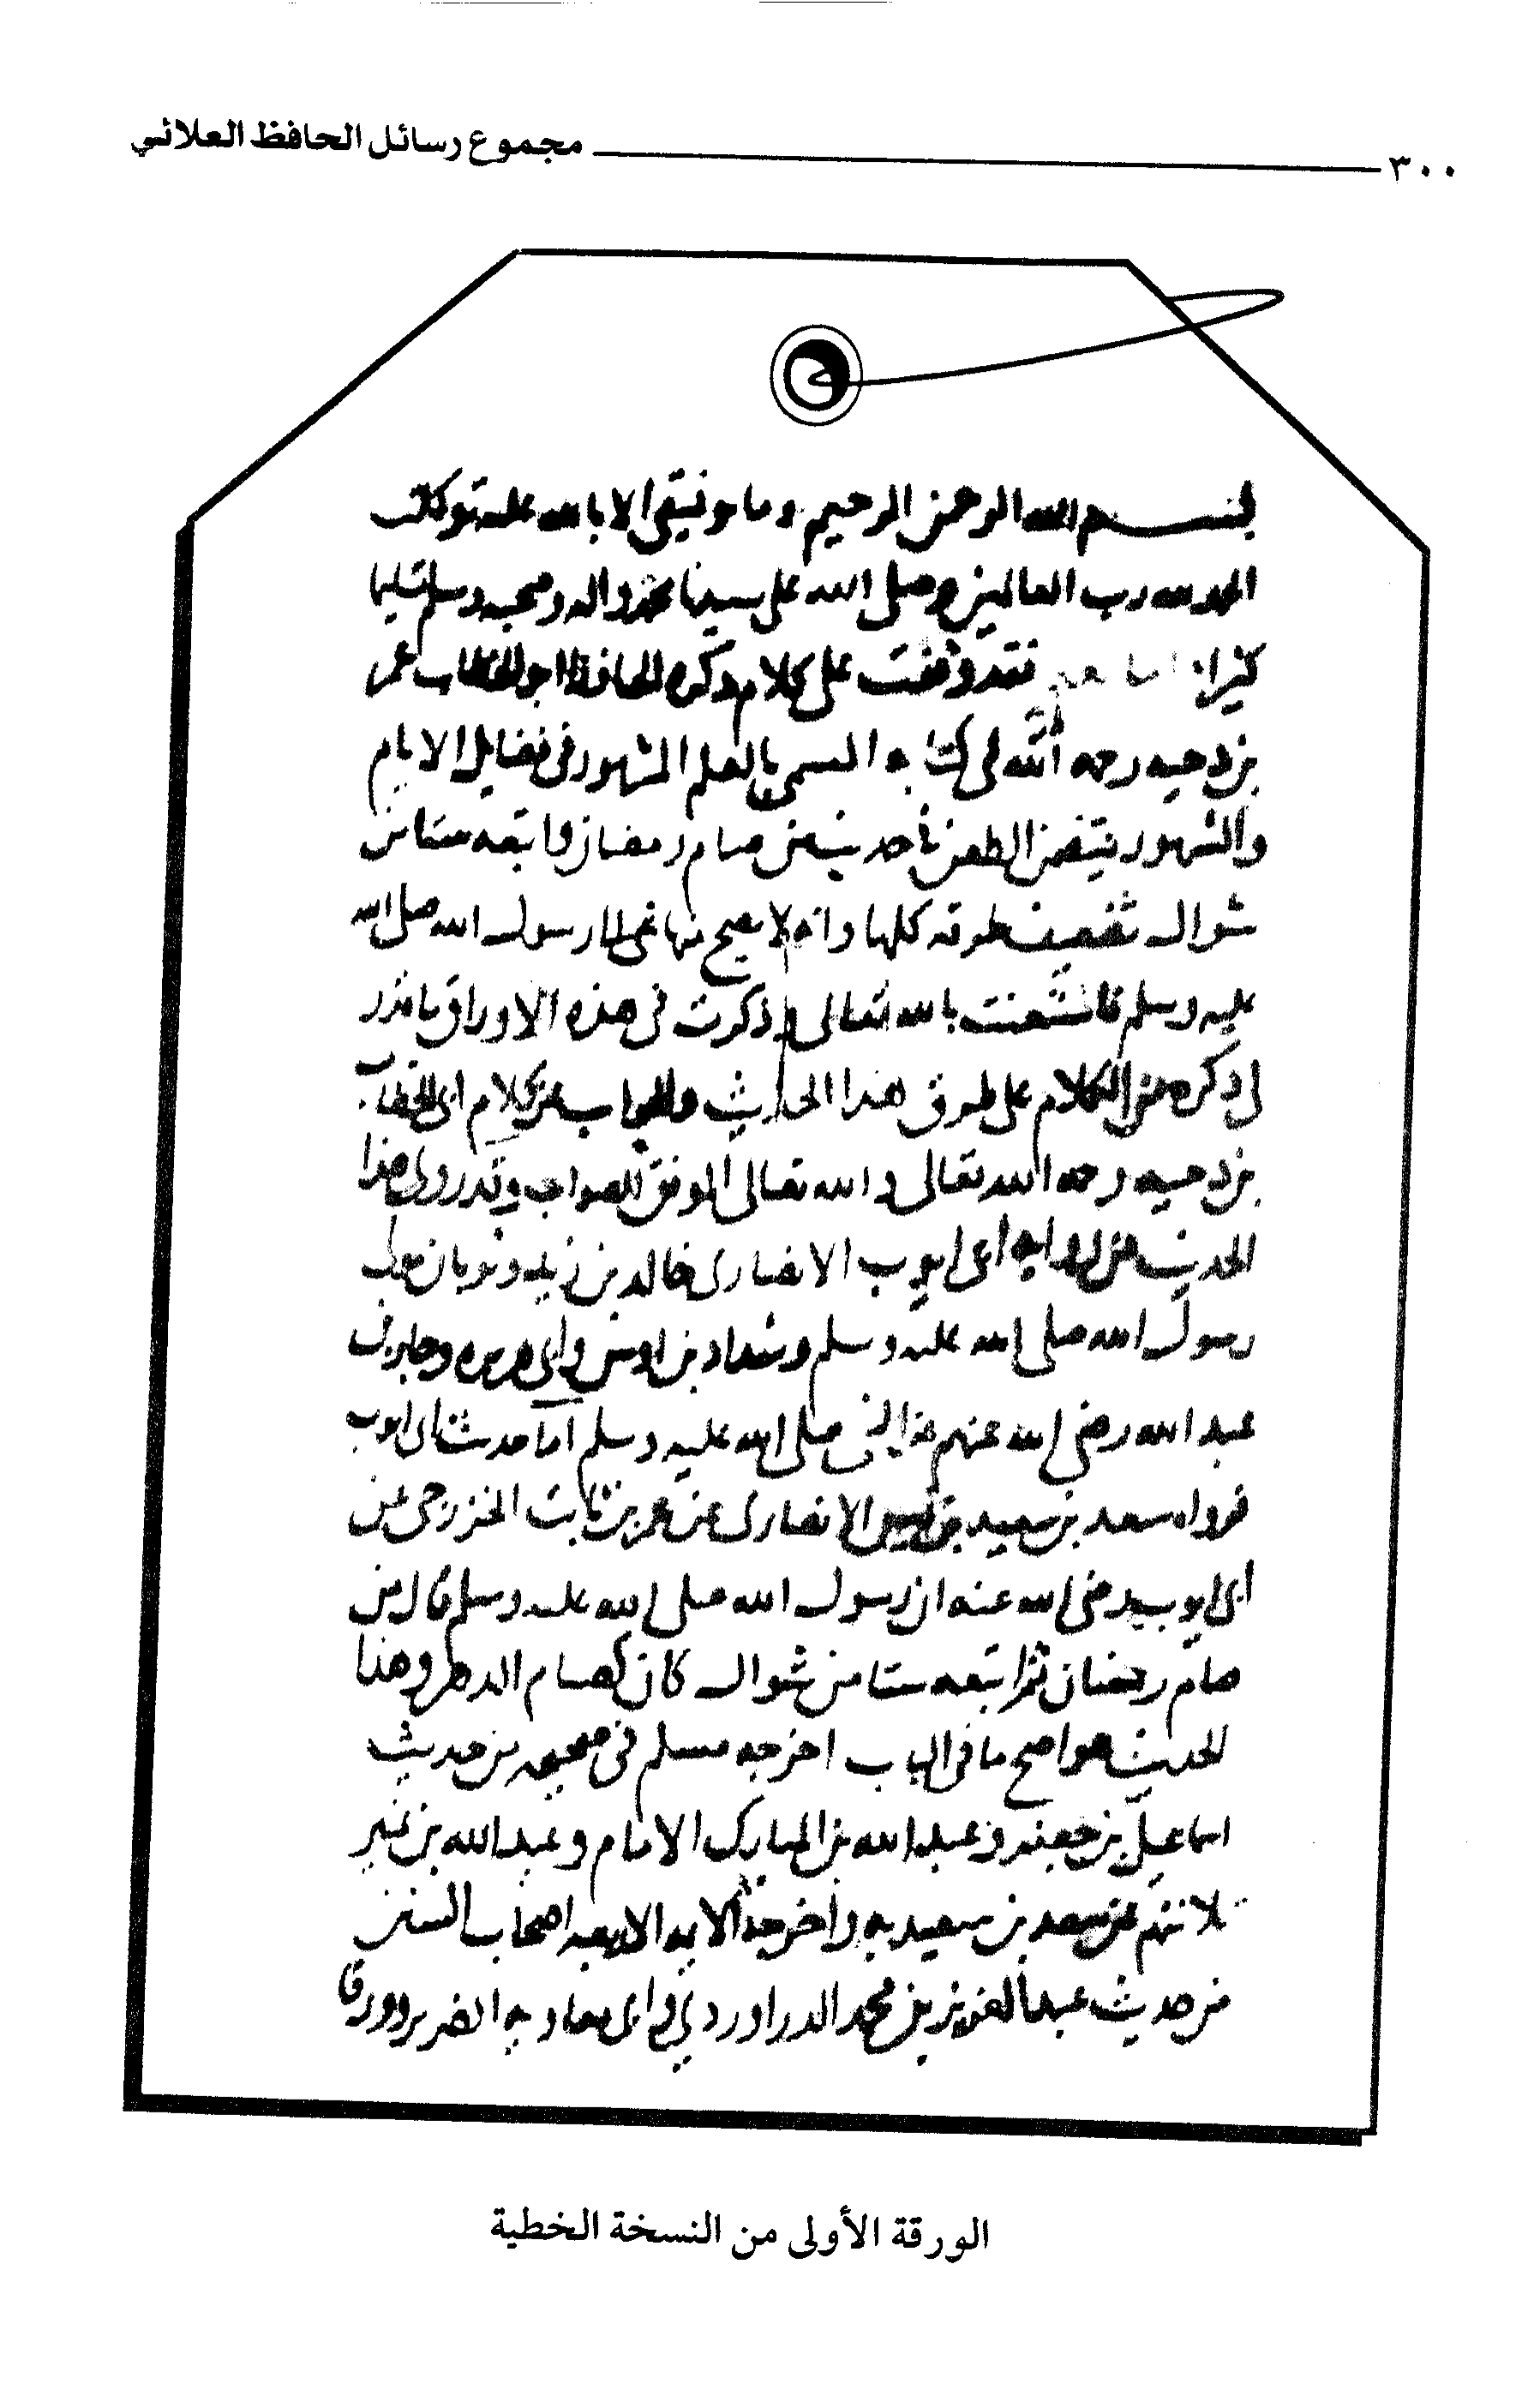 ٣٠٠ مجموع رسائل الحافظ العلائي
بسم الله الرحمن الرحيم وما توفيقي الا بالله عليه توكلت
الحمد لله رب العالمين وصلى الله على سيدنا محمد واله وصحبه وسلم تسليما
كثيرا اما بعد فقد وقفت على كلام ذكره الحافظ ابو الخطاب عمر
بن دحيه رحمه الله في كتابه المسمى بالعلم المشهور في فضايل الايام
والشهور يتضمن الطعن في حديث من صام رمضان واتبعه ستا من
شوال تضعيف طرقه كلها وانه لا يصح منها رسول الله صلى الله
عليه وسلم فاستعنت بالله تعالى وذكرت في هذه الاوراق ما قدر
لي ذكره من الكلام على طرق هذا الحديث والجواب عن كلام ابي الخطاب
بن دحيه رحمه الله تعالى والله تعالى الموفق للصواب وقد روي هذا
الحديث من رواية ابي ايوب الانصاري خالد بن زيد وثوبان مولى
رسول الله صلى الله عليه وسلم وشداد بن اوس وابي هريره وجابر بن
عبد الله رضي الله عنهم عن النبي صلى الله عليه وسلم اما حديث ابي ايوب
فرواه سعد بن سعيد بن قيس الانصاري عن عمر بن ثابت الخزرجي عن
ابي ايوب رضي الله عنه ان رسول الله صلى الله عليه وسلم قال من
صام رمضان ثم اتبعه ستا من شوال كان كصيام الدهر وهذا
الحديث هو اصح ما في الباب اخرجه مسلم في صحيحه من حديث
اسماعيل بن جعفر وعبد الله بن المبارك الامام وعبد الله بن نمير
ثلاثتهم عن سعد بن سعيد به واخرجه الايمه الاربعه اصحاب السنن
من حديث عبد العزيز بن محمد الدراوردي وابي معاويه الضرير وورقا
الورقة الأولى من النسخة الخطية